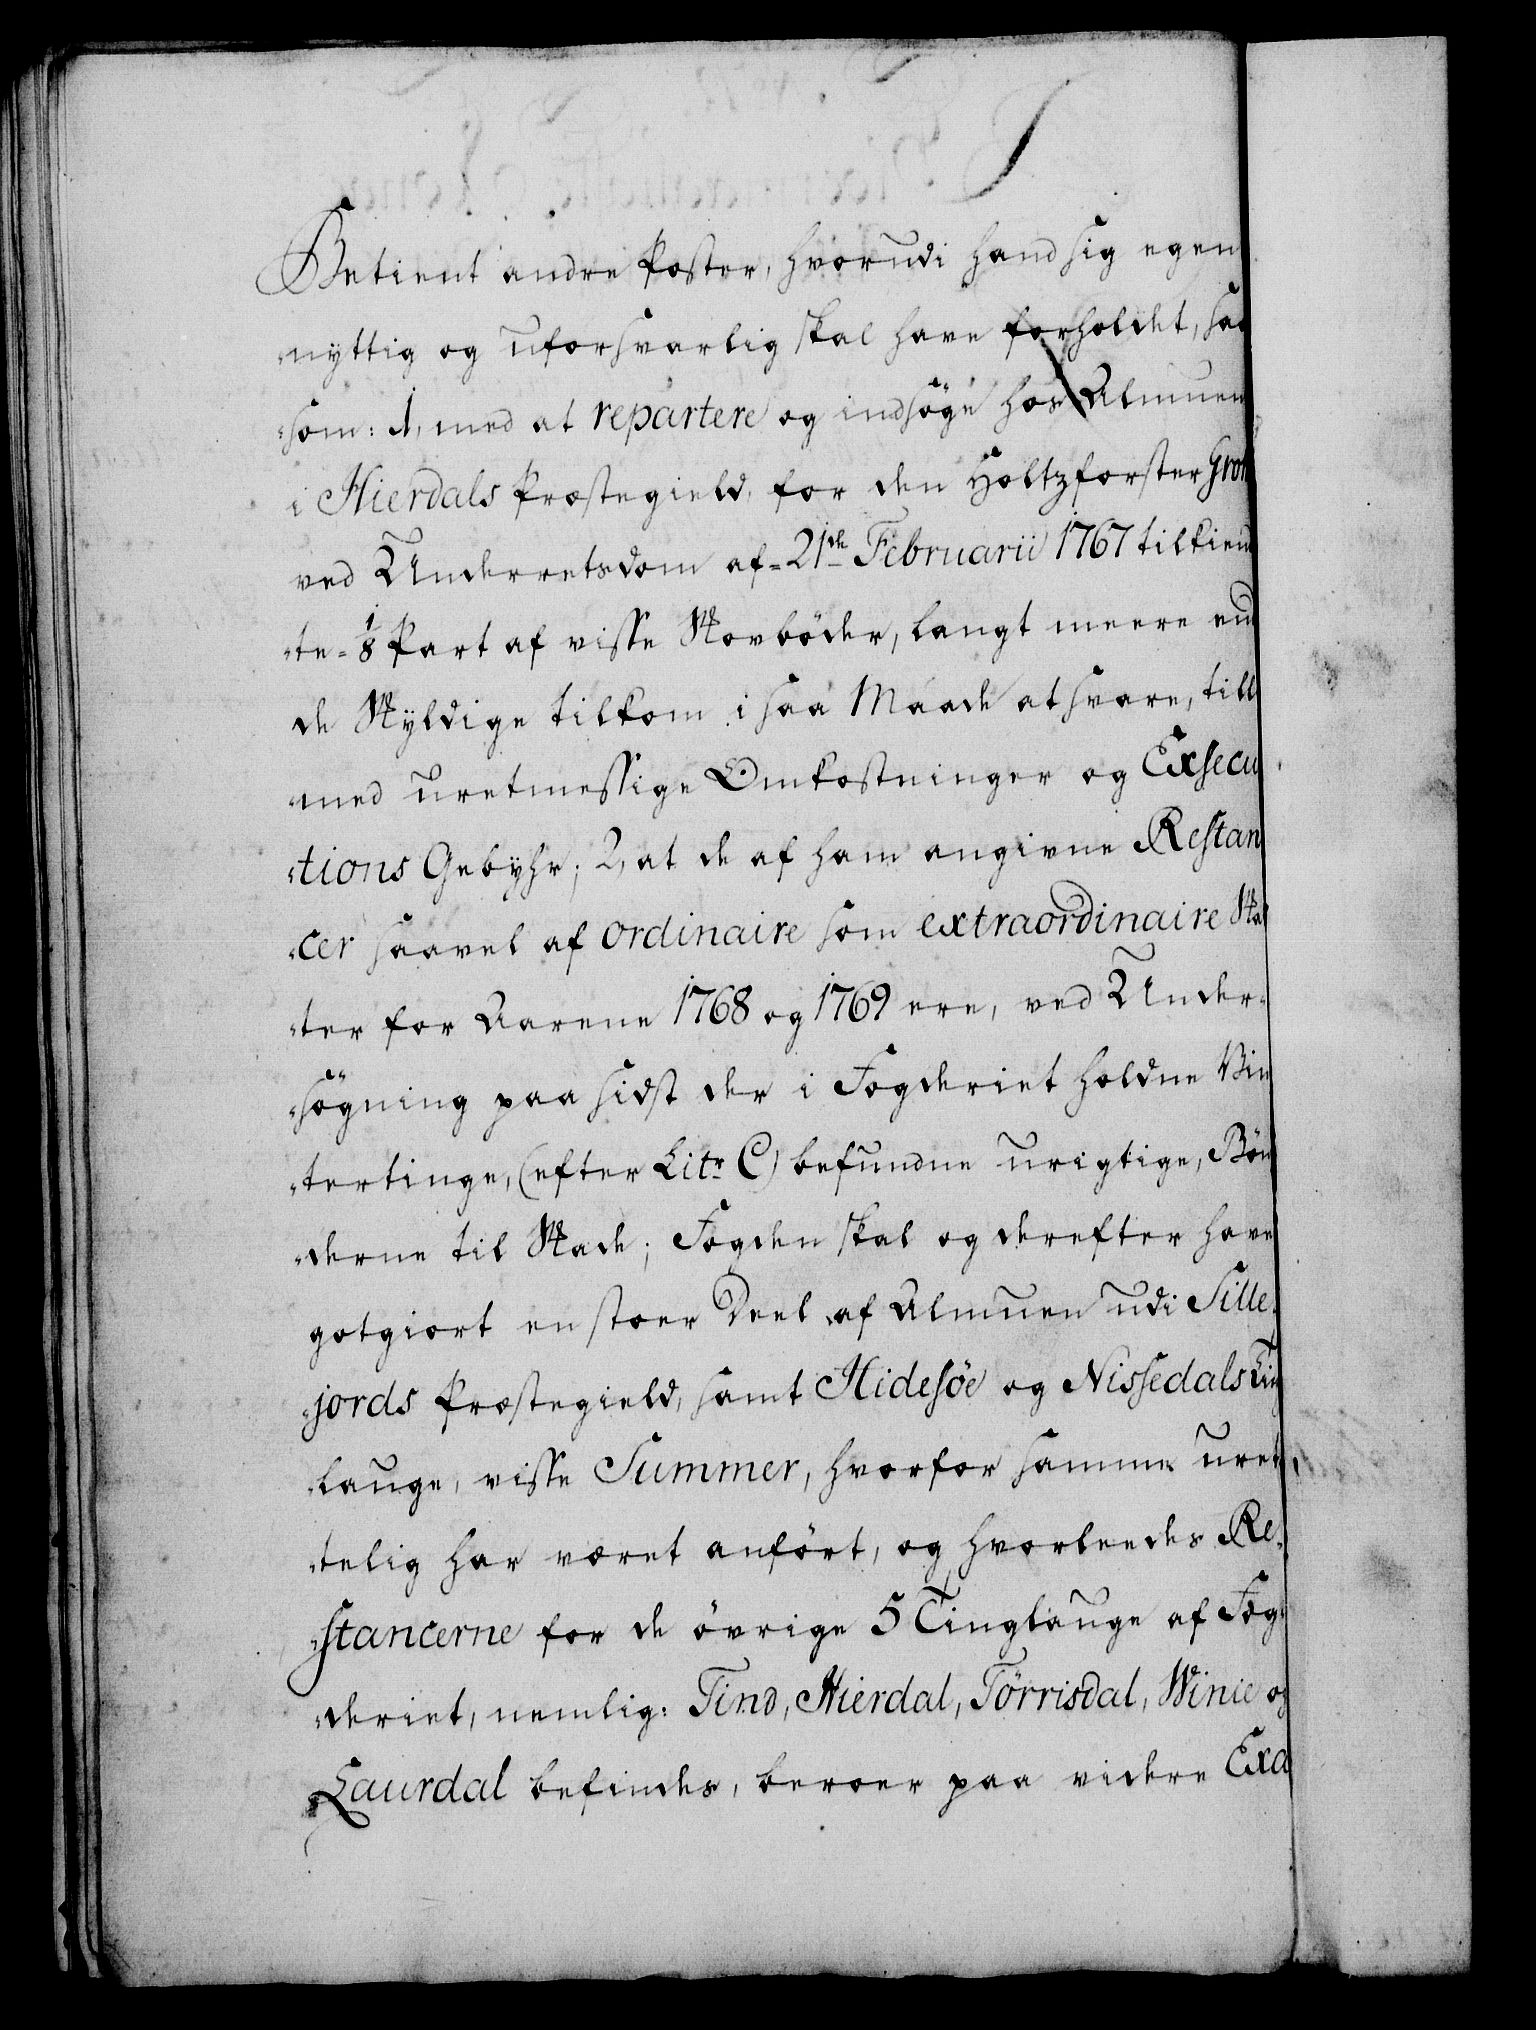 Betient andre Poster, hvorudi hand sig egen
nyttig og uforsvarlig skal have forholdet, saa
som: 1, med at repartere og indsöge hos Almuen
i Hierdals Præstegield, for den Holtzforster
ved Underretsdom af 21de Februarii 1767 tilkien
te 1/8 Part af visse Skovbøder, langt meere end
de Skyldige tilkom i saa Maade at svare, till
med uretmessige Omkostninger og Exsecu
tions Gebyhr; 2, at de af ham angivne Restan
cer saavel af ordinaire som extraordinaire Skat
ter for Aarene 1768 og 1769 ere, ved Under-
søgning paa sidst der i Fogderiet holdne Vin
tertinge, (efter Litr. C) befundne urigtige, Bøn
derne til Skade; Fogden skal og derefter have
gotgiort en stoer Deel af Almuen udi Sille-
jords Præstegield, samt Hidesöe og Nissedals Ting
lauge, visse Summer, hvorfor samme uret
telig har været anført, og hvorleedes Re-
stancerne for de övrige 5 Tinglauge af Fog-
deriet, nemlig: Tind, Hierdal, Törrisdal, Winie og
Laurdal befindes, beroer paa videre Exa